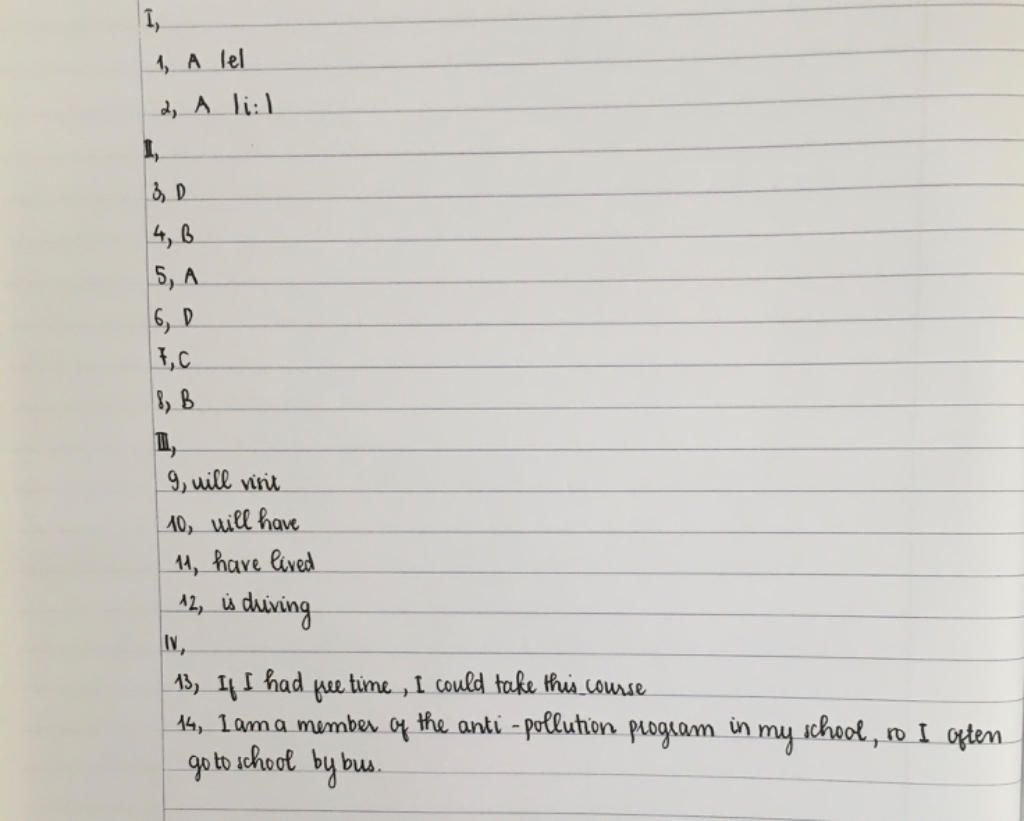 I,
1, A /e/
2, A /i:/
II,
3, D
4, B
5, A
6, D
7, C
8, B
III,
9, will visit
10, will have
11, have lived
12, is driving
IV,
13, If I had free time, I could take this course
14, I am a member of the anti-pollution program in my school, so I often
go to school by bus.